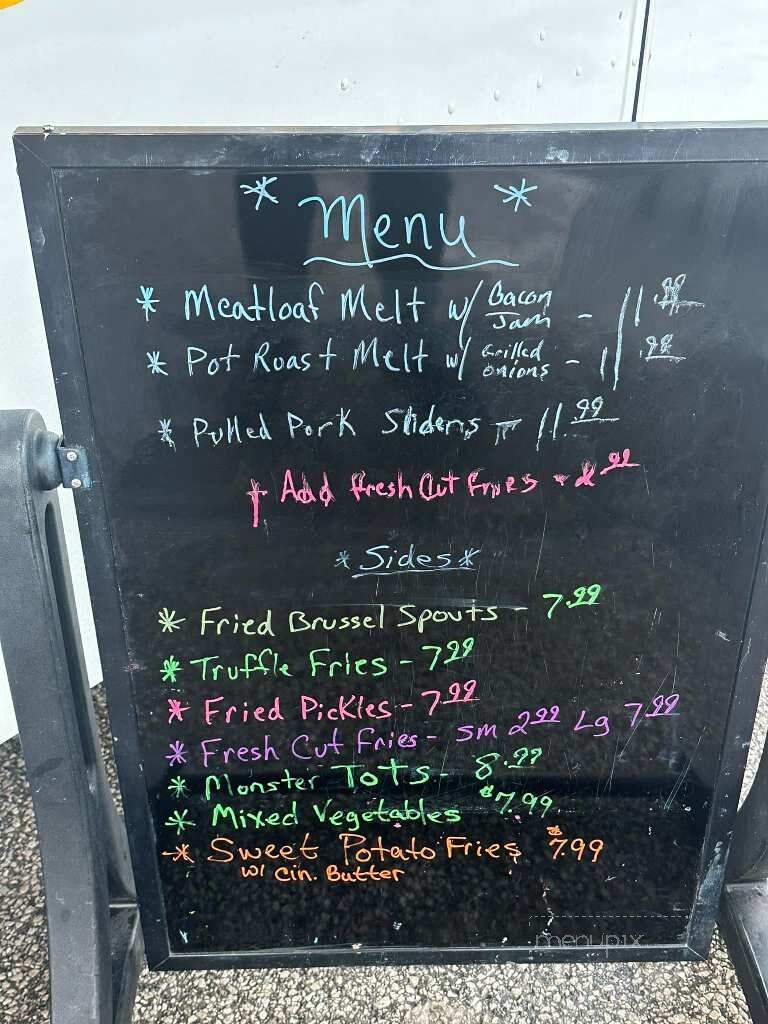 * Menu *
* Meatloaf Melt w/ Bacon Jam - 11.99
* Pot Roast Melt w/ Grilled onions - 11.99
* Pulled Pork Sliders - 11.99
Add Fresh Cut Fries - 2.99
* Sides *
* Fried Brussel Spouts - 7.99
* Truffle Fries - 7.99
* Fried Pickles - 7.99
* Fresh Cut Fries - Sm 2.99 Lg 7.99
* Monster Tots - 8.99
* Mixed Vegetables $7.99
* Sweet Potato Fries $7.99
w/ Cin. Butter
menupix